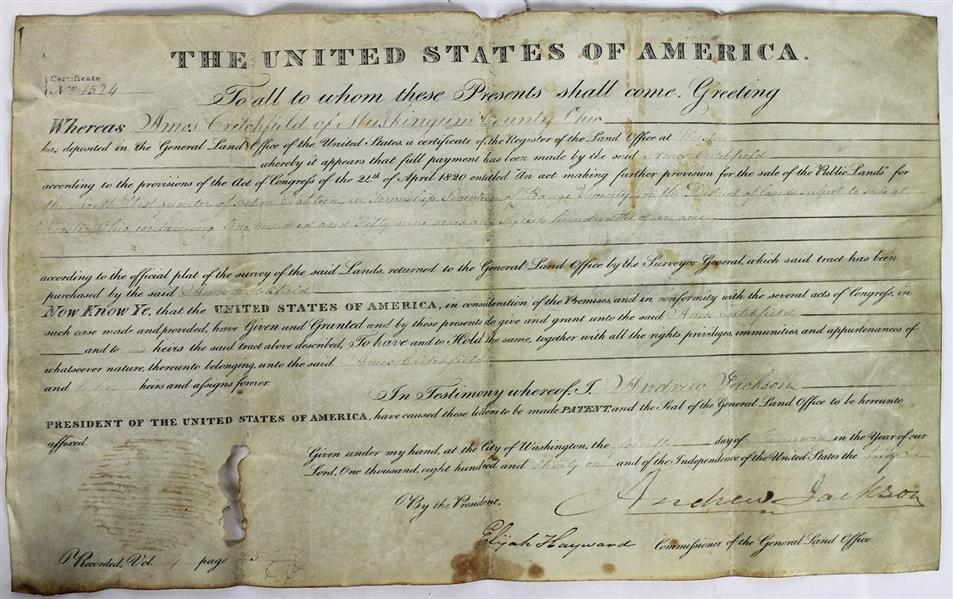 THE UNITED STATES OF AMERICA.
Certificate
No. 1524
To all to whom these Presents shall come, Greeting
Whereas Amos Critchfield of Muskingum County Ohio
has deposited in the General Land Office of the United States, a certificate of the Register of the Land Office at
whereby it appears that full payment has been made by the said Amos Critchfield
according to the provisions of the Act of Congress of the 24th of April 1820 entitled "An act making further provision for the sale of the Public Lands" for
the North West quarter of section Eighteen, in Township Seventeen of Range Twenty, in the District of Lands subject to sale at
Wooster, Ohio, containing One hundred and Fifty nine acres and hundredths of an acre
according to the official plat of the survey of the said Lands, returned to the General Land Office by the Surveyor General, which said tract has been
purchased by the said Amos Critchfield
Now Know Ye, that the UNITED STATES OF AMERICA, in consideration of the Premises, and in conformity with the several acts of Congress, in
such case made and provided, have Given and Granted and by these presents do give and grant unto the said Amos Critchfield
and to his heirs the said tract above described, To have and to Hold the same, together with all the rights privileges, immunities, and appurtenances of
whatsoever nature, thereunto belonging, unto the said Amos Critchfield
and to his heirs and assigns forever.
In Testimony whereof, I, Andrew Jackson
PRESIDENT OF THE UNITED STATES OF AMERICA, have caused these letters to be made PATENT, and the Seal of the General Land Office to be hereunto
affixed.
Given under my hand, at the City of Washington, the day of in the Year of our
Lord, One thousand, eight hundred and thirty one and of the Independence of the United States the
Andrew Jackson
By the President,
Elijah Hayward Commissioner of the General Land Office.
Recorded, Vol. 4 page